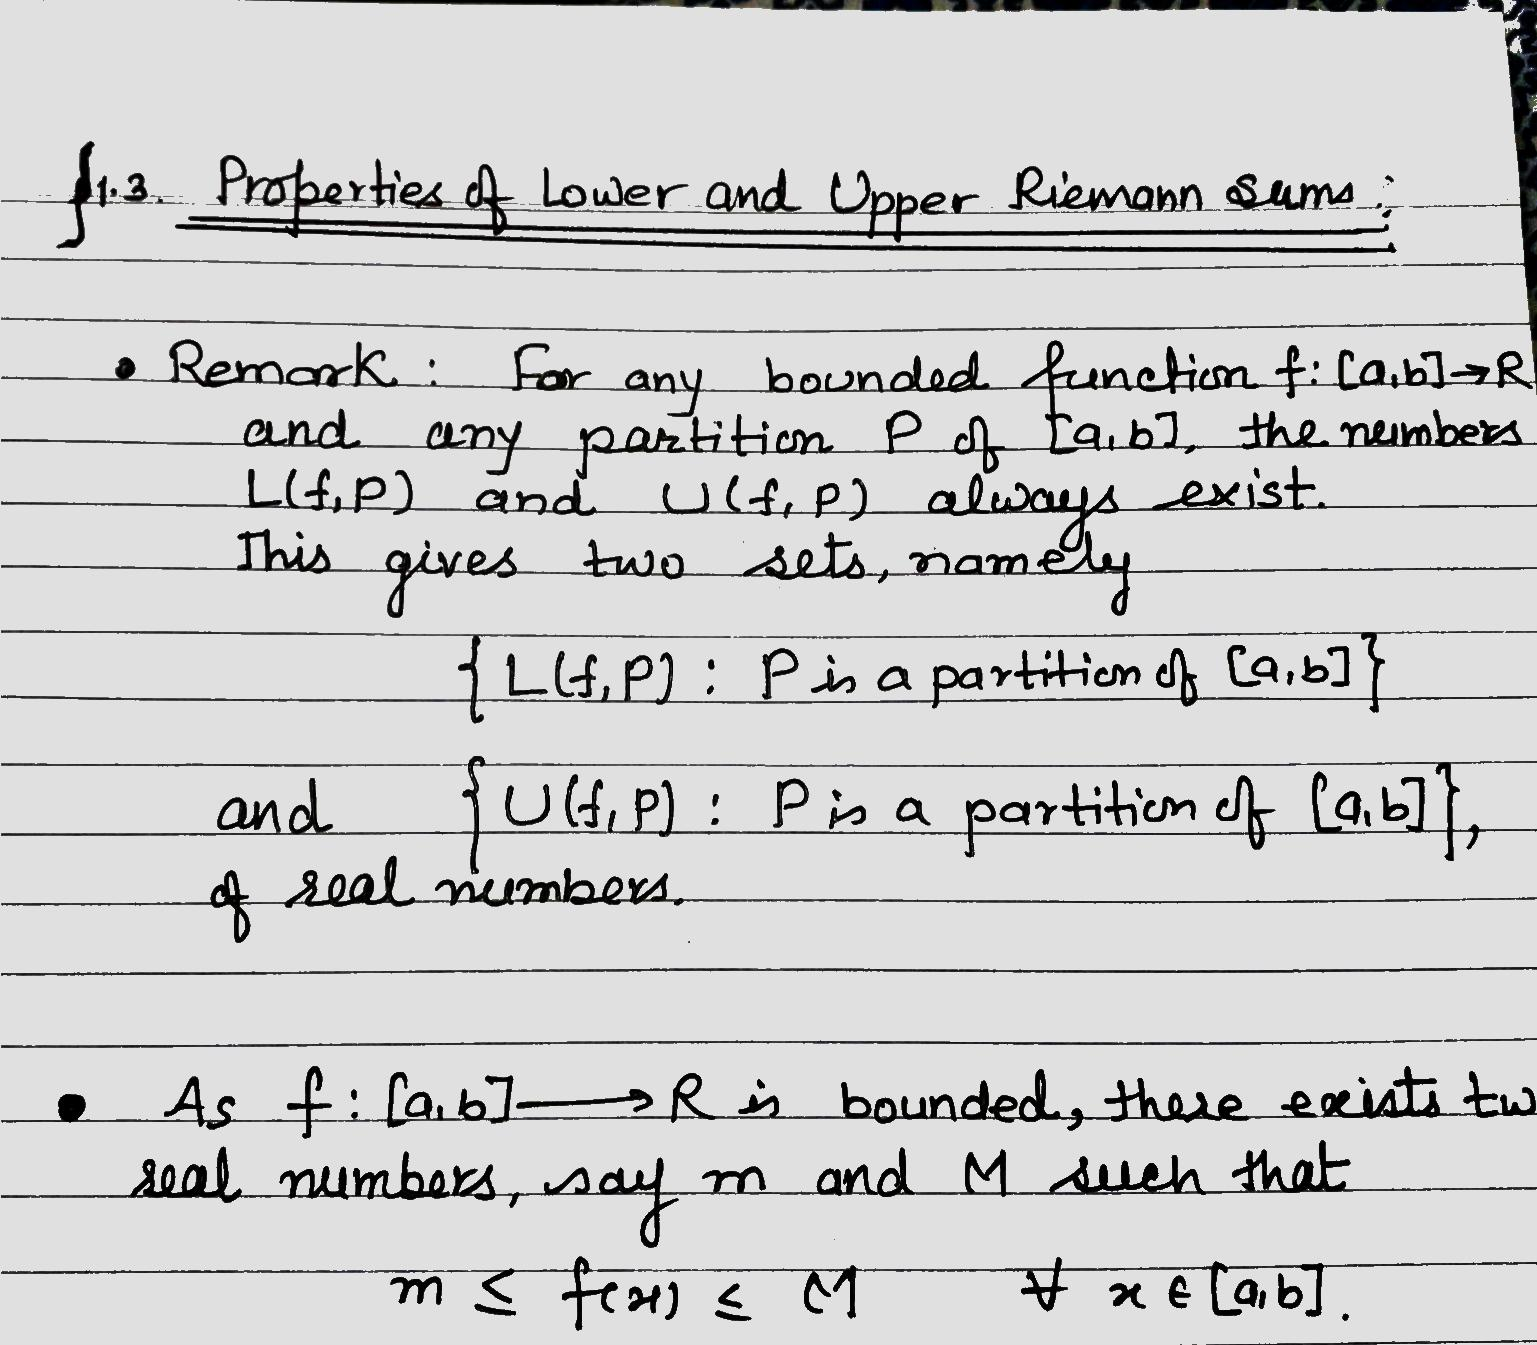 §1.3. Properties of Lower and Upper Riemann Sums:
• Remark: For any bounded function f: [a,b]→R
and any partition P of [a,b], the numbers
L(f,P) and U(f,P) always exist.
This gives two sets, namely
{L(f,P): P is a partition of [a,b]}
and {U(f,P): P is a partition of [a,b]},
of real numbers.
• As f: [a,b]→R is bounded, there exists tw
real numbers, say m and M such that
m ≤ f(x) ≤ M ∀ x ∈ [a,b].